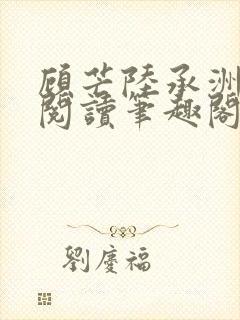 顧芒陸承洲
閱讀筆趣閣
劉慶福